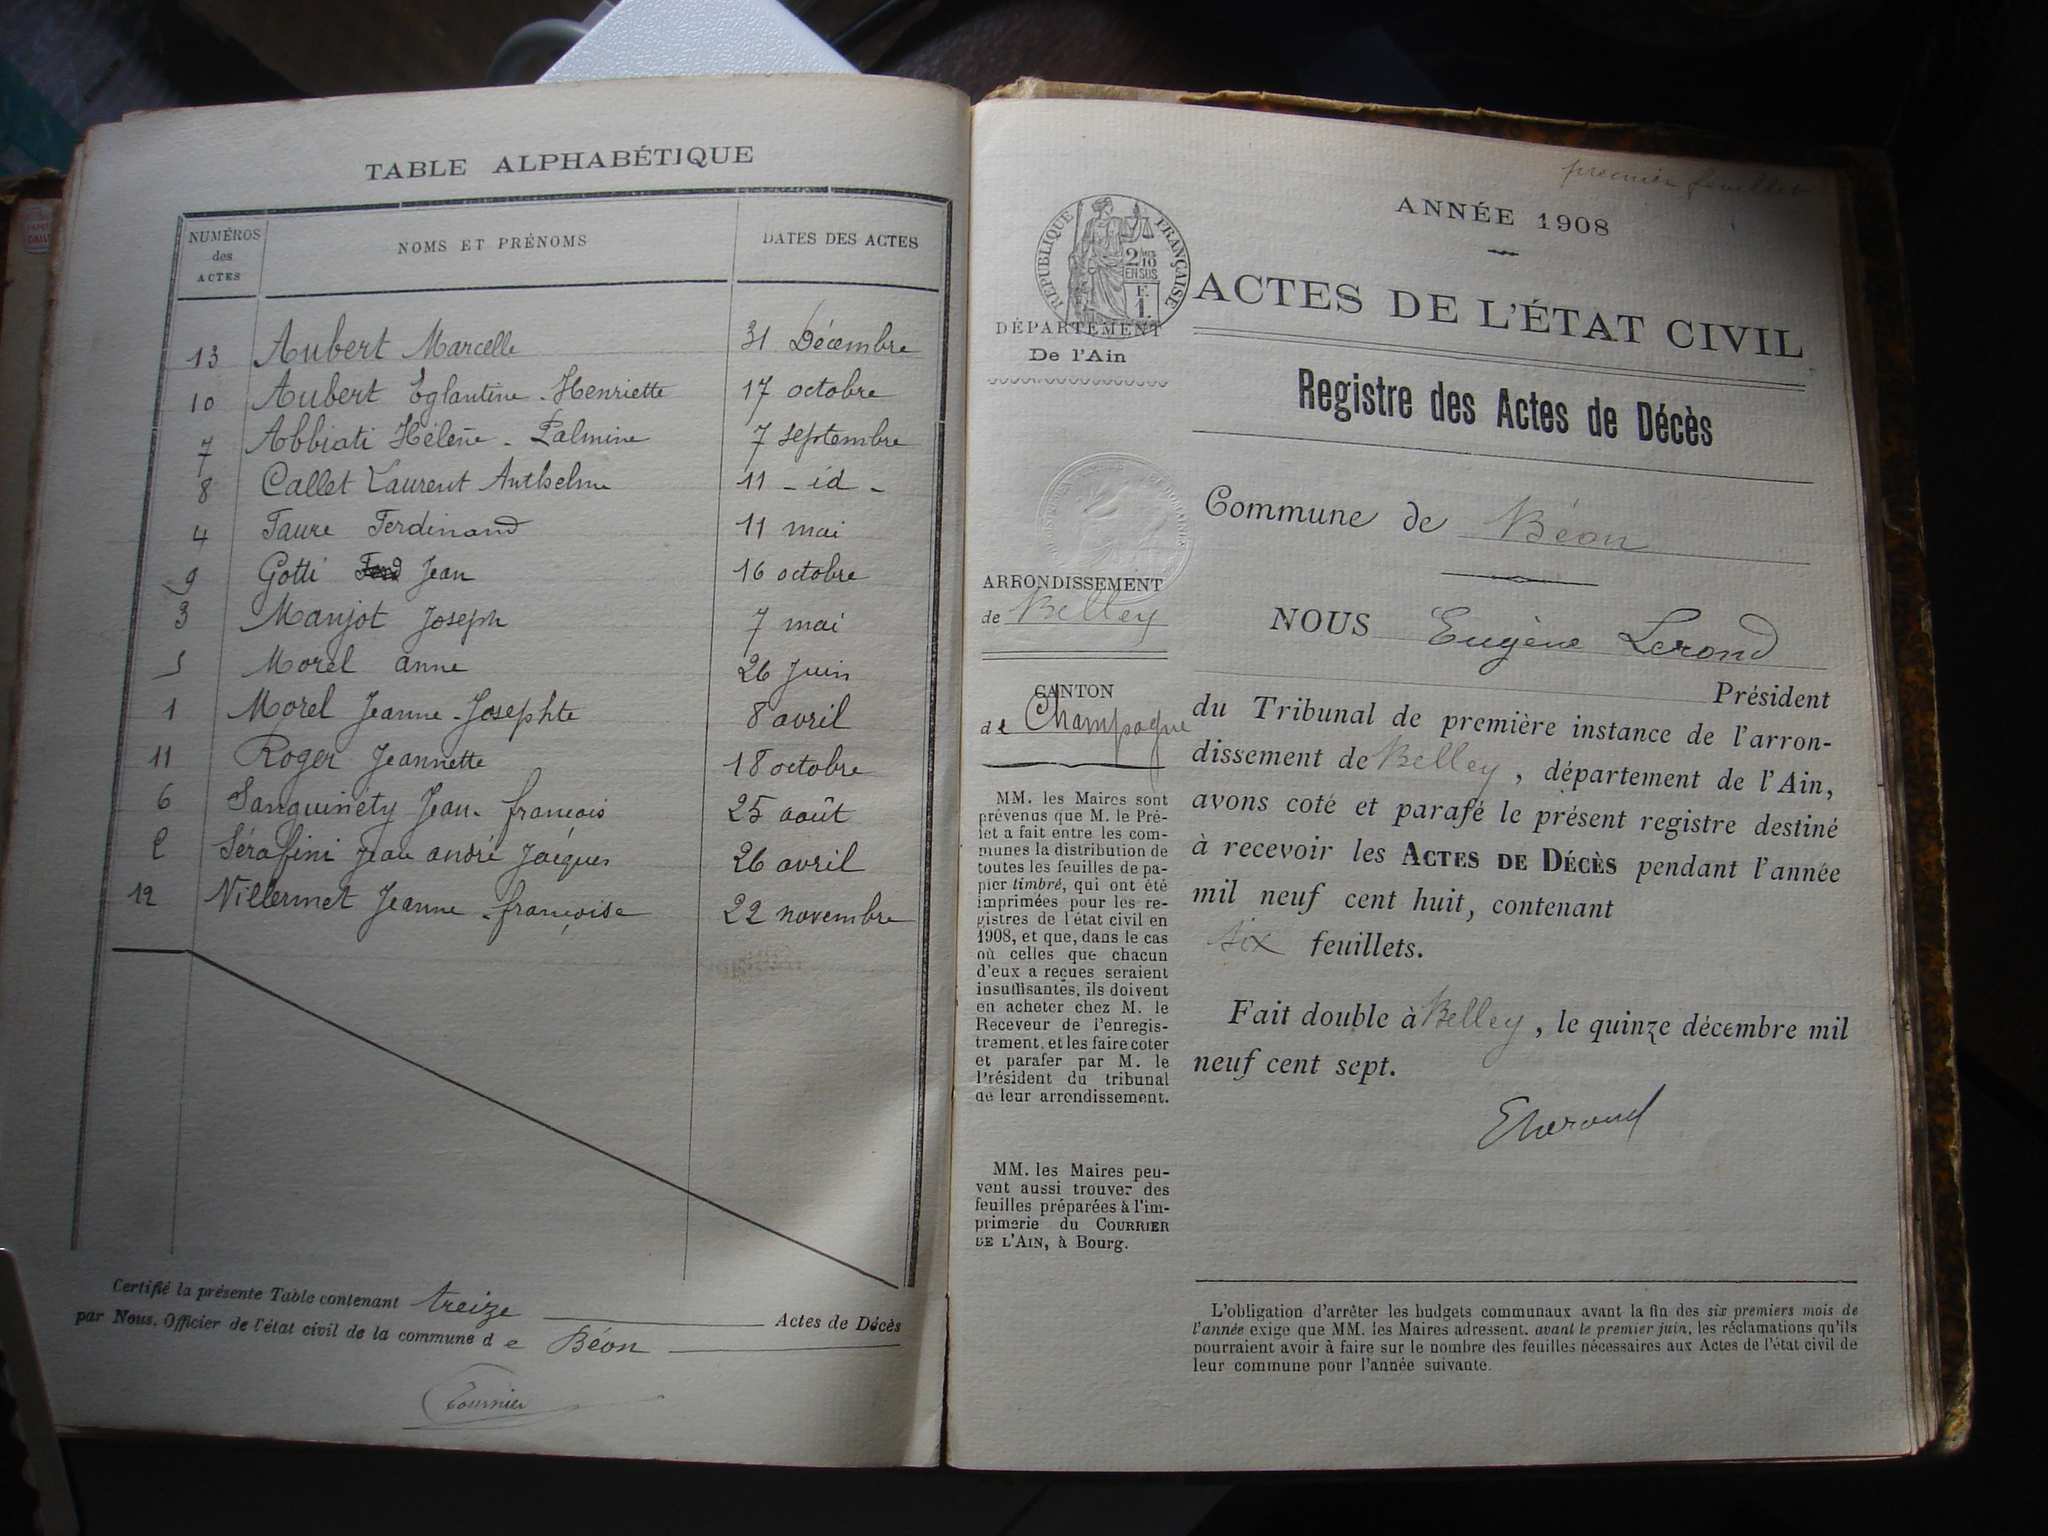 TABLE ALPHABÉTIQUE
NUMÉROS des ACTES NOMS ET PRÉNOMS DATES DES ACTES
13 Aubert Marcelle 31 Décembre
10 Aubert Eglantine-Henriette 17 octobre
7 Abbiati Hélène-Palmine 7 septembre
8 Callet Laurent Anthelme 11 - id -
4 Faure Ferdinand 11 mai
9 Gotti Jean 16 octobre
3 Manjot Joseph 7 mai
5 Morel anne 26 Juin
1 Morel Jeanne-Josephte 8 avril
11 Roger Jeannette 18 octobre
6 Sanguinéty Jean-françois 25 août
2 Sérafini Jean andré Jacques 26 avril
12 Villermet Jeanne-françoise 22 novembre
Certifié la présente Table contenant treize Actes de Décès
par Nous, Officier de l'état civil de la commune de Béon
Tournier
premier feuillet
ANNÉE 1908
RÉPUBLIQUE FRANÇAISE
2/10 EN SUS
F. 1.
ACTES DE L'ÉTAT CIVIL
DÉPARTEMENT
De l'Ain
Registre des Actes de Décès
Commune de Béon
ARRONDISSEMENT
de Belley
NOUS Eugène Lerond
Président
CANTON
de Champagne
du Tribunal de première instance de l'arron-
dissement de Belley, département de l'Ain,
avons coté et parafé le présent registre destiné
à recevoir les ACTES DE DÉCÈS pendant l'année
mil neuf cent huit, contenant
six feuillets.
Fait double à Belley, le quinze décembre mil
neuf cent sept.
ELerond
MM. les Maires sont
prévenus que M. le Pré-
fet a fait entre les com-
munes la distribution de
toutes les feuilles de pa-
pier timbré, qui ont été
imprimées pour les re-
gistres de l'état civil en
1908, et que, dans le cas
où celles que chacun
d'eux a reçues seraient
insuffisantes, ils doivent
en acheter chez M. le
Receveur de l'enregis-
trement, et les faire coter
et parafer par M. le
Président du tribunal
de leur arrondissement.
MM. les Maires peu-
vent aussi trouver des
feuilles préparées à l'im-
primerie du COURRIER
DE L'AIN, à Bourg.
L'obligation d'arrêter les budgets communaux avant la fin des six premiers mois de
l'année exige que MM. les Maires adressent, avant le premier juin, les réclamations qu'ils
pourraient avoir à faire sur le nombre des feuilles nécessaires aux Actes de l'état civil de
leur commune pour l'année suivante.